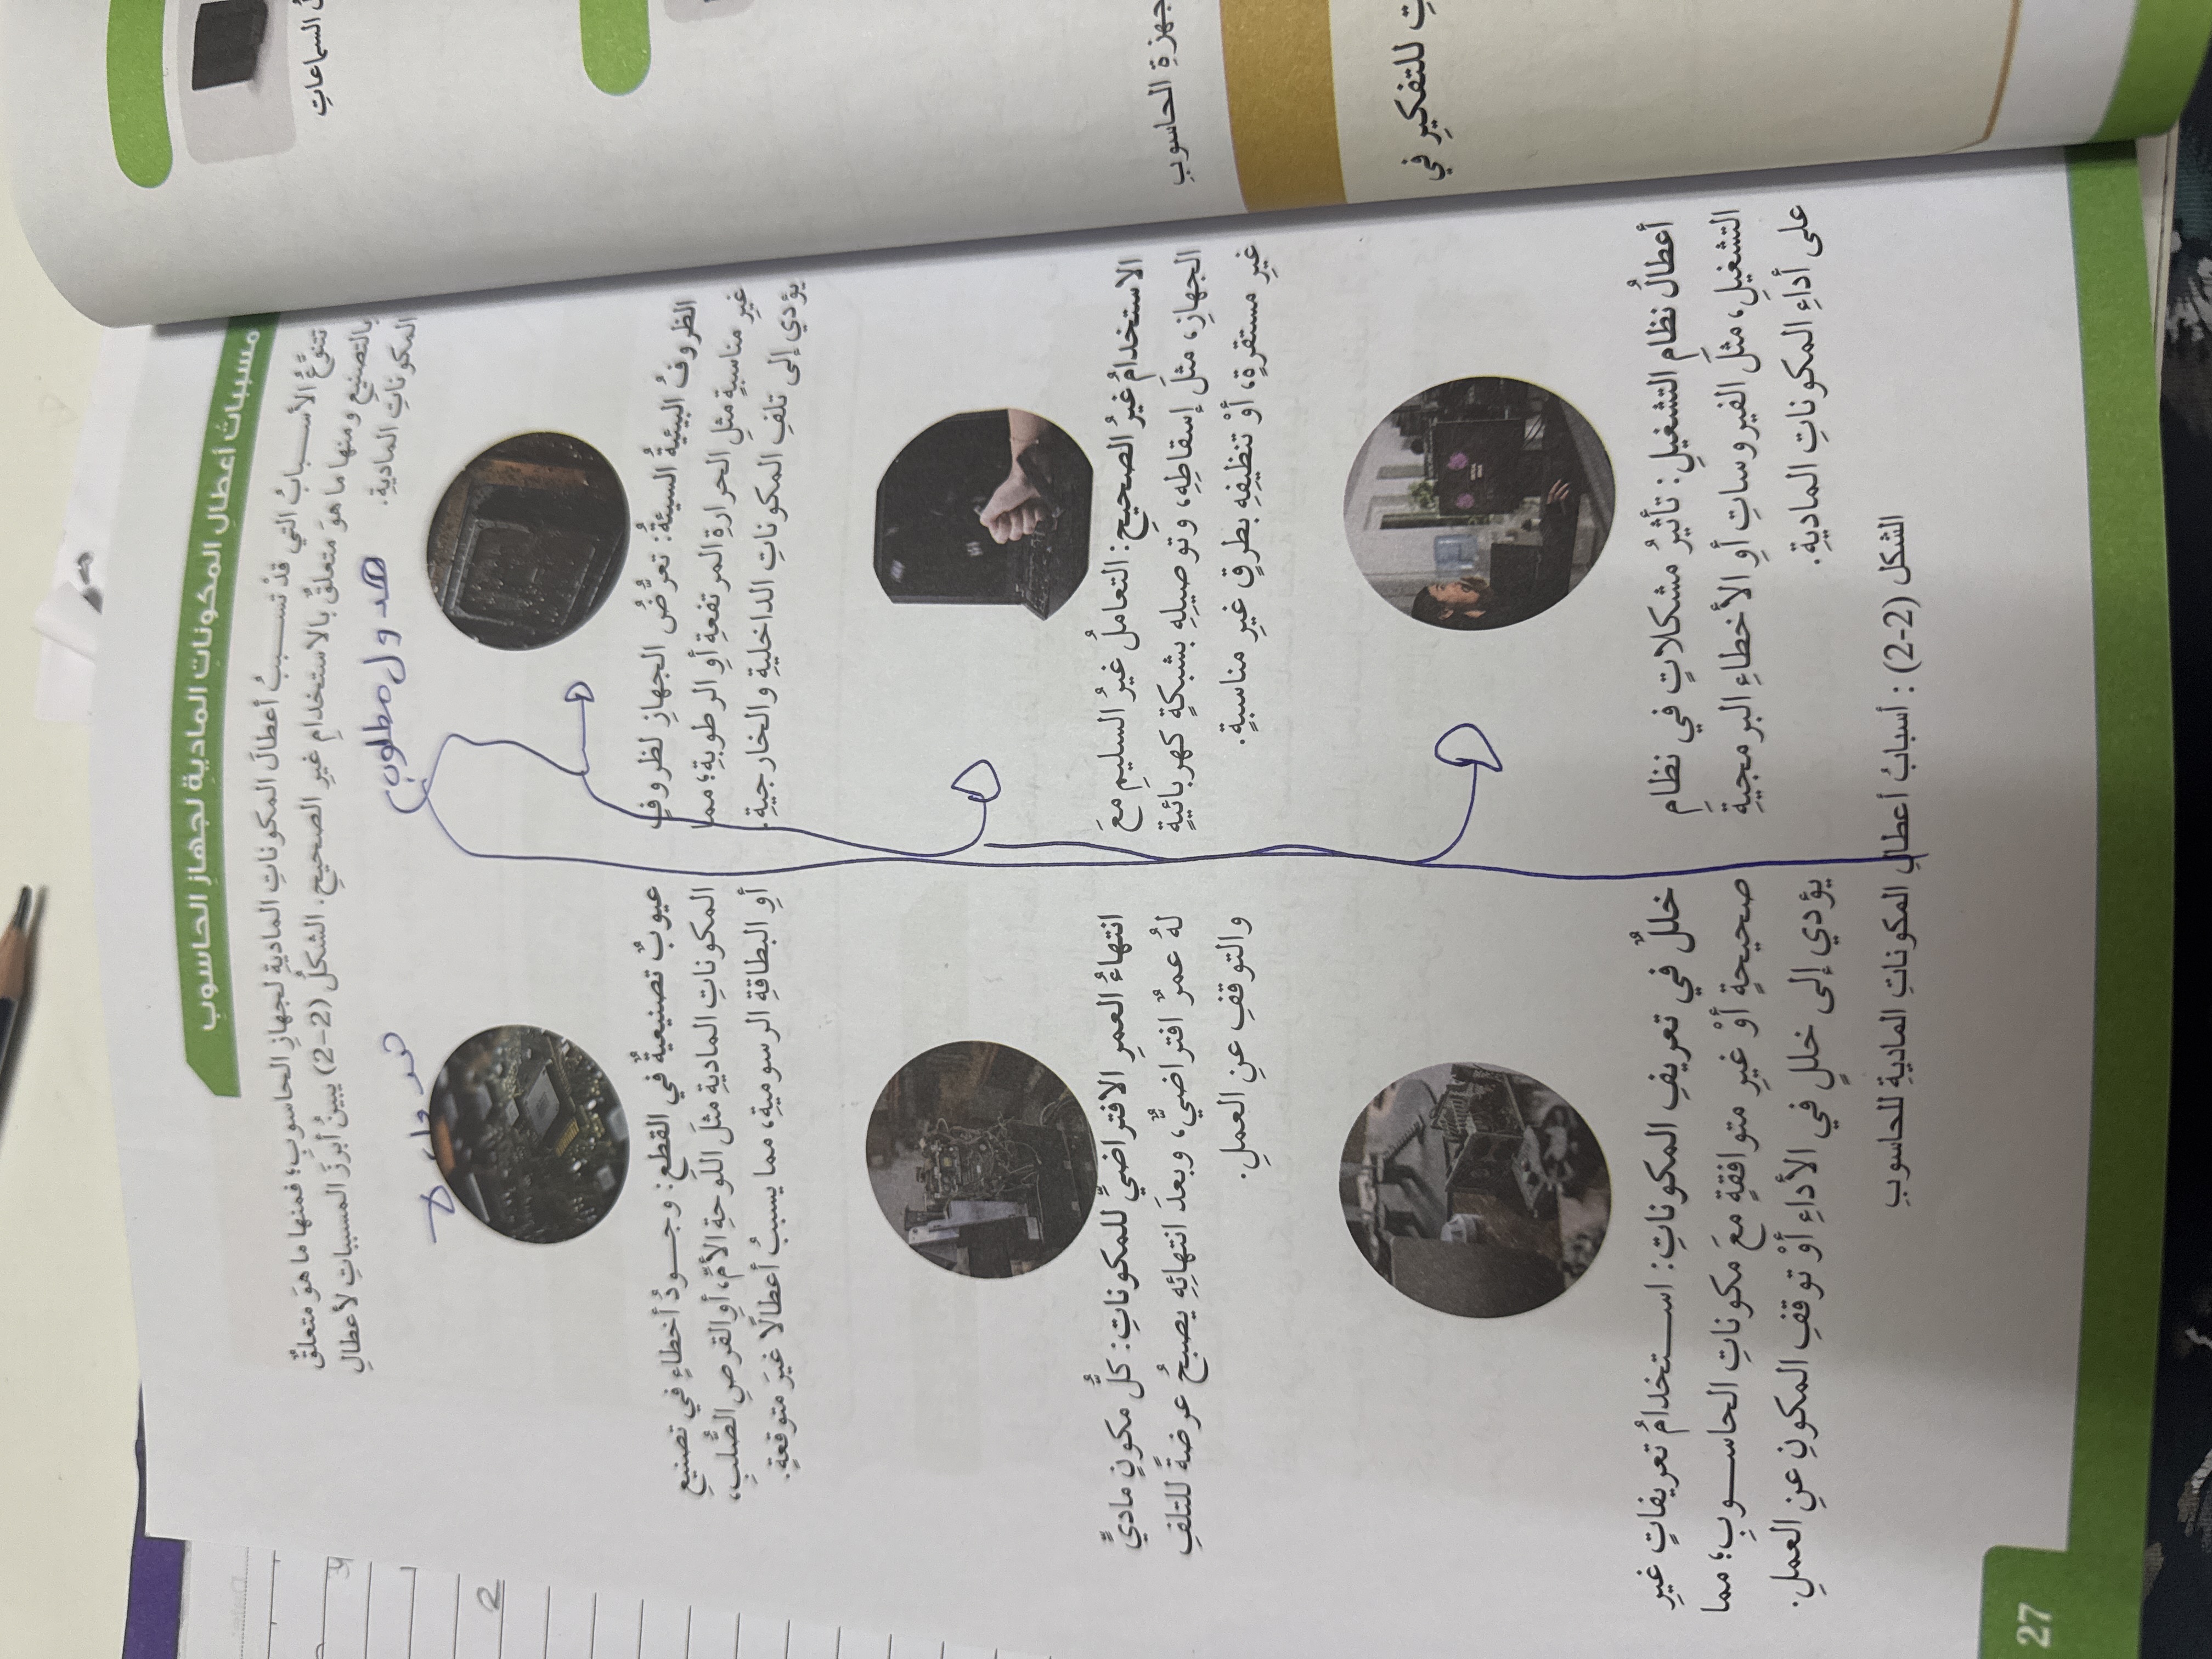 مسبباتُ أعطالِ المكوناتِ الماديةِ لجهازِ الحاسوبِ
تتنوَّعُ الأسـبابُ التي قدْ تسـببُ أعطالَ المكوناتِ الماديةِ لجهازِ الحاسوبِ؛ فمنها ما هوَ متعلقٌ
بالتصنيعِ ومنها ما هوَ متعلقٌ بالاستخدامِ غيرِ الصحيحِ. الشكلُ (2-2) يبينُ أبرزَ المسبباتِ لأعطالِ
المكوناتِ الماديةِ.
الظروفُ البيئيةُ السيئةُ: تعرُّضُ الجهازِ لظروفٍ
غيرِ مناسبةٍ مثلِ الحرارةِ المرتفعةِ أوِ الرطوبةِ؛ مما
يؤدي إلى تلفِ المكوناتِ الداخليةِ والخارجيةِ.
عيوبٌ تصنيعيةٌ في القطعِ: وجـودُ أخطاءٍ في تصنيعِ
المكوناتِ الماديةِ مثلَ اللَّوحةِ الأمِّ، أوِ القرصِ الصُّلبِ،
أوِ البطاقةِ الرسوميةِ، مما يسببُ أعطالًا غيرَ متوقعةٍ.
الاستخدامُ غيرُ الصحيحِ: التعاملُ غيرُ السليمِ معَ
الجهازِ، مثلَ إسقاطِهِ، وتوصيلِهِ بشبكةٍ كهربائيةٍ
غيرِ مستقرةٍ، أوْ تنظيفِهِ بطرقٍ غيرِ مناسبةٍ.
انتهاءُ العمرِ الافتراضيِّ للمكوناتِ: كلُّ مكونٍ ماديٍّ
لهُ عمرٌ افتراضيٌّ، وبعدَ انتهائِهِ يصبحُ عرضةً للتلفِ
والتوقفِ عنِ العملِ.
أعطالُ نظامِ التشغيلِ: تأثيرُ مشكلاتٍ في نظامِ
التشغيلِ، مثلَ الفيروساتِ أوِ الأخطاءِ البرمجيةِ
على أداءِ المكوناتِ الماديةِ.
خللٌ في تعريفِ المكوناتِ: اسـتخدامُ تعريفاتٍ غيرِ
صحيحةٍ أوْ غيرِ متوافقةٍ معَ مكوناتِ الحاسـوبِ؛ مما
يؤدي إلى خللٍ في الأداءِ أوْ توقفِ المكونِ عنِ العملِ.
الشكل (2-2) : أسبابُ أعطالِ المكوناتِ الماديةِ للحاسوبِ
27
السماعاتِ
الحاسوبِ
للتفكيرِ في
2